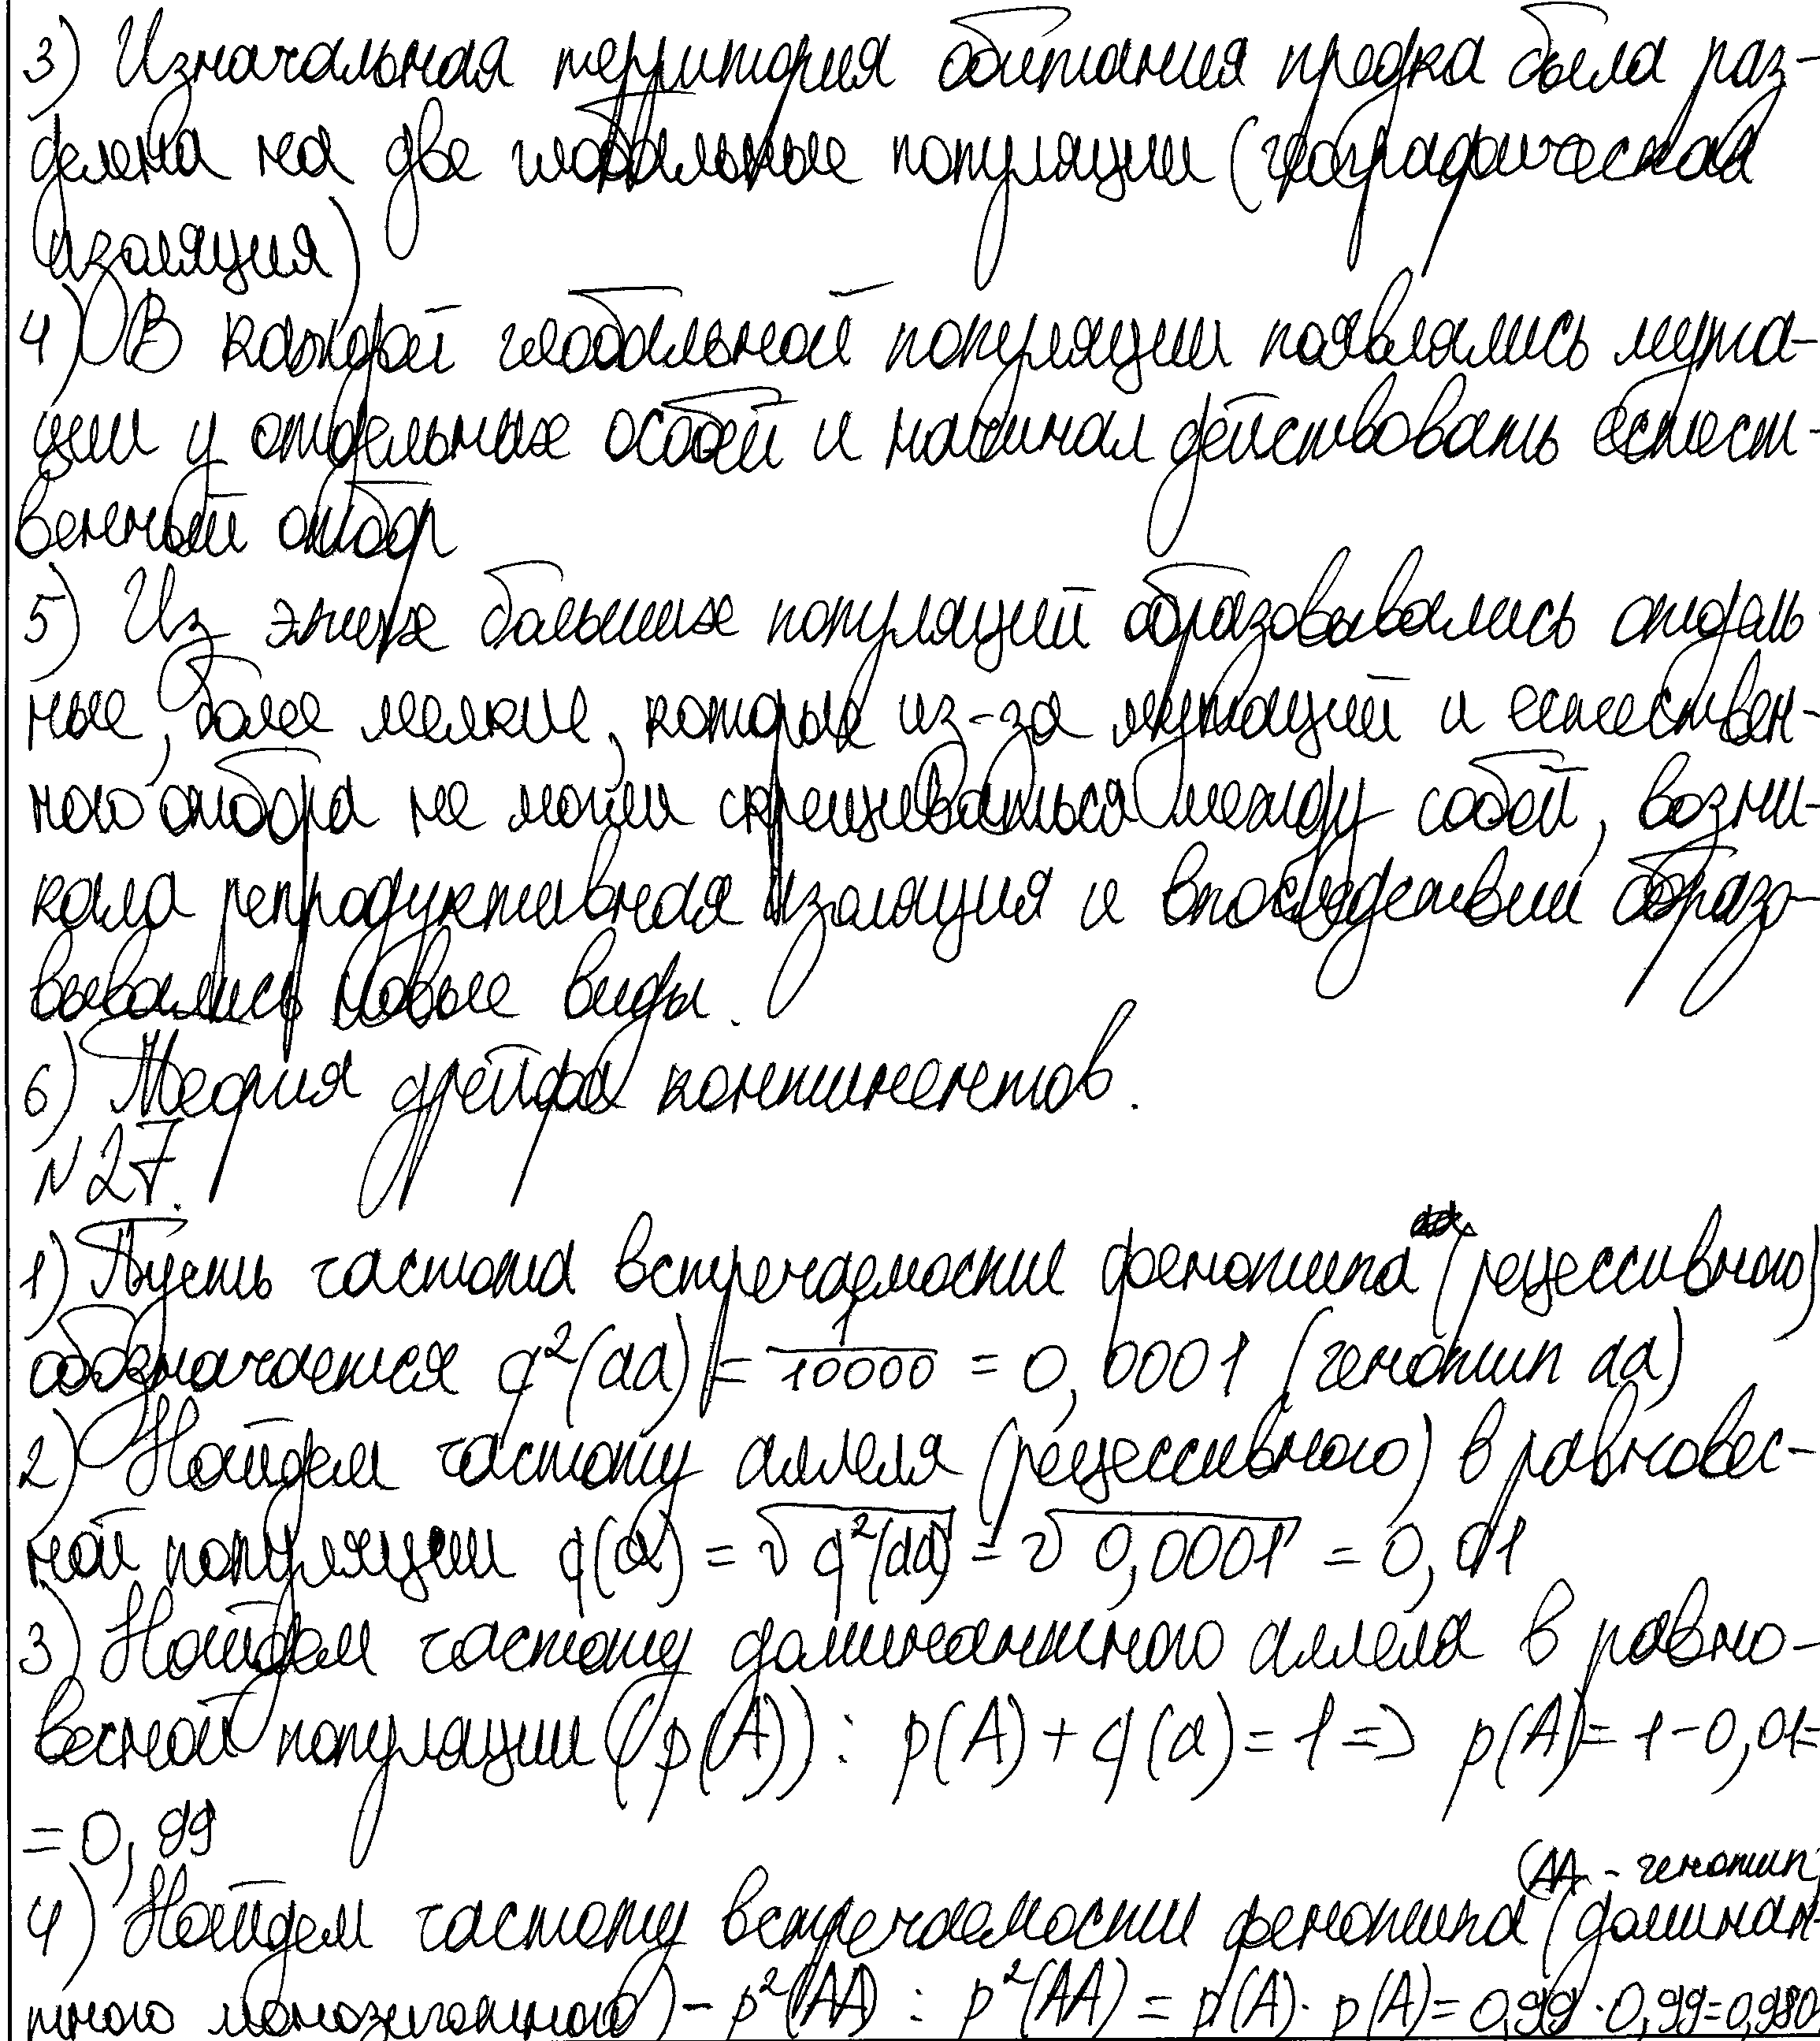 3) Изначальная территория обитания предка была раз-
делена на две глобальные популяции (географическая
изоляция)
4) В каждой глобальной популяции появлялись мута-
ции у отдельных особей и начинал действовать естест-
венный отбор
5) Из этих больших популяций образовывались отдель-
ные, более мелкие, которые из-за мутаций и естествен-
ного отбора не могли скрещиваться между собой, возни-
кала репродуктивная изоляция и впоследствии образо-
вывались новые виды.
6) Теория дрейфа континентов.
№27.
1) Пусть частота встречаемости фенотипа (рецессивного)
обозначается q²(aa) = 1/10000 = 0,0001 (генотип aa)
2) Найдем частоту аллеля (рецессивного) в равновес-
ной популяции q(a) = √q²(aa) = √0,0001 = 0,01
3) Найдем частоту доминантного аллеля в равно-
весной популяции (p(A)): p(A) + q(a) = 1 => p(A) = 1 - 0,01=
= 0,99
(AA - генотип,
4) Найдем частоту встречаемости фенотипа (доминан-
тного моногозиготного) - p²(AA) : p²(AA) = p(A) · p(A) = 0,99 · 0,99 = 0,980